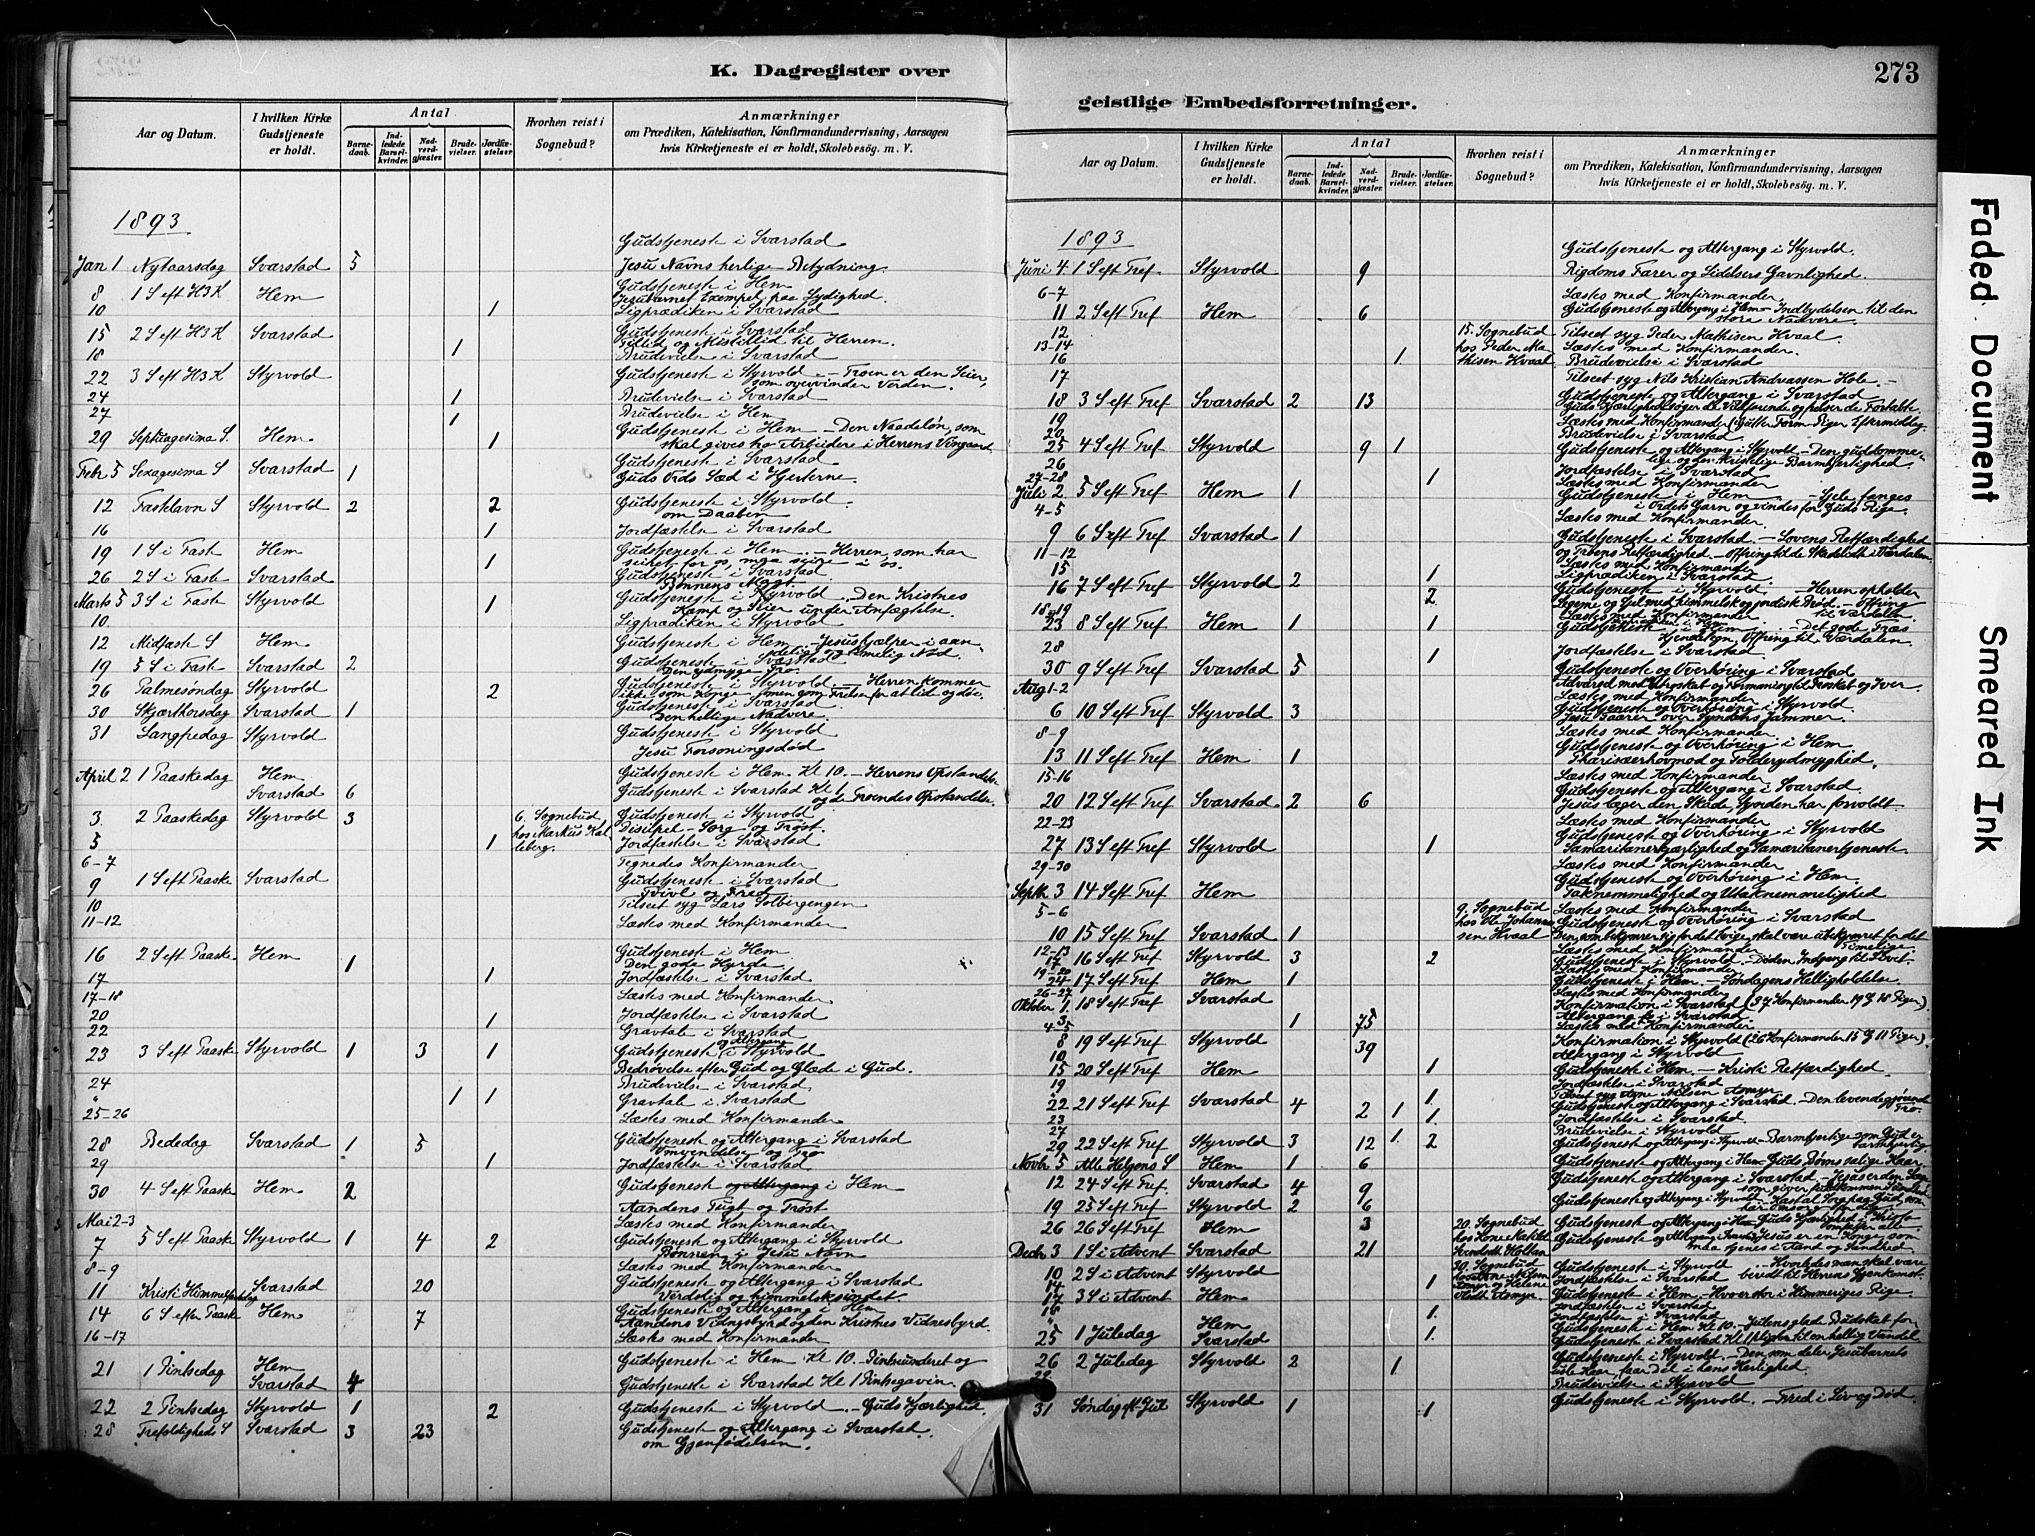 K. Dagregister over
Aar og Datum.
I hvilken Kirke Gudstjeneste er holdt.
Antal
Barne-daab.
Ind-ledede Barsel-kvinder.
Nad-verd-gjæster.
Brude-vielser.
Jordfæ-stelser.
Hvorhen reist i Sognebud?
Anmærkninger
om Prædiken, Katekisation, Konfirmandundervisning, Aarsagen
hvis Kirketjeneste ei er holdt, Skolebesög. m. V.
1893
Gudstjeneste i Svarstad
Jan 1 Nytaarsdag Svarstad 5 Jesu Navns herlige Betydning.
8 1 S eft H3K Hem Gudstjeneste i Hem
Jesubarnet Exempel paa Lydighed.
10 1 Ligprædiken i Svarstad
15 2 S eft H3K Svarstad Gudstjeneste i Svarstad
Tillid og Mistillid til Herren.
18 1 Brudevielse i Svarstad
22 3 S eft H3K Styrvold Gudstjeneste i Styrvold. – Troen er den Seier,
som overvinder Verden.
24 1 Brudevielse i Svarstad
27 1 Brudevielse i Hem
29 Septuagesima S. Hem 1 Gudstjeneste i Hem – Den Naadeløn, som
skal gives ho Arbeidere i Herrens Vingaard
Febr 5 Sexagesima S Svarstad 1 Gudstjeneste i Svarstad
Guds Ords Sæd i Hjerterne.
12 Fastelavn S Styrvold 2 2 Gudstjeneste i Styrvold.
om Daaben
16 1 Jordfæstelse i Svarstad
19 1 S i Fast Hem 1 Gudstjeneste i Hem. – Herren, som har
seiret for os, maa seire i os.
26 2 S i Faste Svarstad Gudstjeneste i Svarstad
Bønnens Magt.
Marts 5 3 S i Fast Styrvold 1 Gudstjeneste i Styrvold. Den Kristnes
Kamp og Seier under Anfægtelse.
10 Ligprædiken i Styrvold
12 Midfaste S Hem Gudstjeneste i Hem – Jesus hjælper i aan-
delig og timelig Nød.
19 5 S i Fast Svarstad 2 Gudstjeneste i Svarstad
Den ydmyge Tro
26 Palmesøndag Styrvold 2 Gudstjeneste i Styrvold – Herren kommer
ikke som Konge
30 Skjærthorsdag Svarstad 1 Gudstjeneste i Svarstad.
Den hellige Nadvere.
31 Langfredag Styrvold Gudstjeneste i Styrvold
Jesu Forsoningsdød
April 2 1 Paaskedag Hem Gudstjeneste i Hem Kl 10. – Herrens Opstandelse
Svarstad 6 Gudstjeneste i Svarstad Kl 1
og de Troendes Opstandelse.
3 2 Paaskedag Styrvold 3 6. Sognebud Gudstjeneste i Styrvold
hos Markus Kal Disciplel – Sorg og Trøst.
5 1 leberg. Jordfæstelse i Svarstad
6–7 Tegnedes Konfirmander
9 1 S eft Paaske Svarstad Gudstjeneste i Svarstad
Tvivl og Fred
10 Tilseet syg Lars Solbergengen
11–12 Læstes med Konfirmander
16 2 S eft Paaske Hem 1 Gudstjeneste i Hem
Den gode Hyrde
17 1 Jordfæstelse i Svarstad
17–18 Læstes med Konfirmander
20 1 Jordfæstelse i Svarstad
22 Gravtale i Svarstad
23 3 S eft Paaske Styrvold 1 3 1 Gudstjenest og Altergang i Styrvold
Bedrøvelse efter Gud og Glæde i Gud.
24 1 Brudevielse i Svarstad
" 1 Gravtale i Svarstad
25–26 Læstes med Konfirmander
28 Bededag Svarstad 1 5 Gudstjenest og Altergang i Svarstad
Omvendelse og Tro
29 1 Jordfæstelse i Svarstad.
30 4 S eft Paaske Hem 2 Gudstjenest og Altergang i Hem
Aandens Tugt og Trøst
Mai 2–3 Læstes med Konfirmander
7 5 S eft Paaske Styrvold 1 4 2 Gudstjenest og Altergang i Styrvold
Bønnen i Jesu Navn
8–9 Læstes med Konfirmander
11 Kristi Himmelfartsdag Svarstad 20 Gudstjenest og Altergang i Svarstad
Verdslig og himmelsksindet
14 6 S efter Paaske Hem 7 Gudstjenest og Altergang i Hem
Aandens Vidnesbyrd og den Kristnes Vidnesbyrd.
16–17 Læstes med Konfirmander
21 1 Pintsedag Hem Gudstjeneste i Hem Kl 10. Pintsunderet og
Svarstad 4 Gudstjeneste i Svarstad Kl 1 Pintsegaven.
22 2 Pintsedag Styrvold 1 2 Gudstjeneste i Styrvold. – Guds Kjærlighed.
28 Trefoldigheds S Svarstad 3 23 Gudstjeneste og Altergang i Svarstad.
om Gjenfødelsen.
273
geistlige Embedsforretninger.
Aar og Datum.
I hvilken Kirke Gudstjeneste er holdt.
Antal
Barne-daab.
Ind-ledede Barsel-kvinder.
Nad-verd-gjæster.
Brude-vielser.
Jordfæ-stelser.
Hvorhen reist i Sognebud?
Anmærkninger
om Prædiken, Katekisation, Konfirmandundervisning, Aarsagen
hvis Kirketjeneste ei er holdt, Skolebesög. m. V.
1893
Gudstjeneste og Altergang i Styrvold.
Juni 4 1 S eft Tref. Styrvold 9 Rigdoms Farer og Lidelsers Gavnlighed.
6–7 Læstes med Konfirmander
11 2 S eft Tref Hem 6 Gudstjeneste og Altergang i Hem Indbydelsen til den
store Nadvere.
12 15. Sognebud Tilseet syg Peder Mathisen Hvaal
13–14 hos Peder Ma Læstes med Konfirmander.
16 1 thisen Hvaal Brudevielse i Svarstad
17 Tilseet syg Nils Kristian Andreassen Hole. –
18 3 S eft Tref Svarstad 2 13 Gudstjeneste og Altergang i Svarstad
19 Læstes med Konfirmander
20 Brudevielse i Svarstad
25 4 S eft Tref Styrvold 9 1 Gudstjeneste og Altergang i Styrvold – Den guddomme-
lige og den kristelige Barmhjertighed
26 1 Jordfæstelse i Svarstad
27–28 Læstes med Konfirmander
Juli 2 5 S eft Tref Hem 1 Gudstjeneste i Hem – Sjele fanges
i Ordets Garn og vindes for Guds Rige.
4–5 Læstes med Konfirmander.
9 6 S eft Tref Svarstad 1 Gudstjeneste i Svarstad. – Lovens Retfærdighed
og Troens Retfærdighed – Offring til de Skadelidte i Værdalen
11–12 Læstes med Konfirmander
15 1 Ligprædiken i Svarstad.
16 7 S eft Tref Styrvold 2 2 Gudstjeneste i Styrvold – Herren opholder
Legeme og Sjel med himmelsk og jordisk Brød. – Offring
til Værdalen
18–19 Læstes med Konfirmander
23 8 S eft Tref Hem 1 1 Gudstjeneste i Hem. – Det gode Træs
Kjendetegn, Offring til Værdalen
28 1 Jordfæstelse i Svarstad
30 9 S eft Tref Svarstad 5 Gudstjeneste og Overhøring i Svarstad
Aug 1–2 Læstes med Konfirmander
6 10 S eft Tref Styrvold 3 Gudstjeneste og Overhøring i Styrvold
Jesu Taarer over Syndens Jammer.
8–9 Læstes med Konfirmander.
13 11 S eft Tref Hem 1 Gudstjeneste og Overhøring i Hem
Pharisæerhovmod og Tolderydmyghed.
15–16 Læstes med Konfirmander
20 12 S eft Tref Svarstad 2 6 Gudstjeneste og Altergang i Svarstad
Jesus læger den Skade, Synden har forvoldt
22–23 Læstes med Konfirmander
27 13 S eft Tref Styrvold 1 Gudstjeneste og Overhøring i Styrvold
Samaritanerkjærlighed og Samaritanertjeneste.
29–30 Læstes med Konfirmander
Septbr 3 14 S eft Tref Hem Gudstjeneste og Overhøring i Hem.
Taknemmelighed og Utaknemmelighed
5–6 9. Sognebud Læstes med Konfirmander
hos Ole Johannes Gudstjeneste og Overhøring i Svarstad
10 15 S eft Tref Svarstad 1 sen Hvaal Den, som bekymrer sig for det Evige, skal være ubekymret for det
Timelige
12–13 Læstes med Konfirmander
17 16 S eft Tref Styrvold 3 2 Gudstjeneste i Styrvold. – Døden Indgang til Livet.
19–20 Læstes med Konfirmander
24 17 S eft Tref Hem 1 Gudstjeneste i Hem. – Søndagens Helligholdelse
26–27 Læstes med Konfirmander
Oktober 1. 18 S eft Tref Svarstad Konfirmation i Svarstad (37 Konfirmander 19 G 18 Piger)
3 1 75 Altergang i Svarstad
4–5 Læstes med Konfirmander
8 19 S eft Tref Styrvold 39 Konfirmation i Styrvold (26 Konfirmander 15 G 11 Piger).
10 Altergang i Styrvold
15 20 S eft Tref Hem 1 Gudstjeneste i Hem. – Kristi Retfærdighed
Jordfæstelse i Svarstad
19 1. Tilseet syg Arne Nilsen Asmyr
22 21 S eft Tref Svarstad 4 2 1 1. Gudstjeneste og Altergang i Svarstad. – Den levendegjørende
Tro.
23 Jordfæstelse i Svarstad.
27 1. Brudevielse i Styrvold
29 22 S eft Tref Styrvold 3 12 2 Gudstjeneste og Altergang i Styrvold – Barmhjertige som Gud er
barmhjertig
Novbr 5 Alle Helgens S Hem 1 6 Gudstjeneste og Altergang i Hem Guds Børns salige Kaar
12 24 S eft Tref. Svarstad 4 9 Gudstjeneste og Altergang i Svarstad –
19 25 S eft Tref Styrvold 2 6 Gudstjeneste og Altergang i Styrvold – Kast al Sorg paa Gud, som
har Omsorg
26 26 S eft Tref Hem 3 20. Sognebud Gudstjeneste og Altergang i Hem Guds Kjærlighed i Kristo
Decbr 3 1 S i Advent Svarstad 21 Gudstjeneste og Altergang i Svarstad Jesus er en Konge som
maa tjenes i Aand og Sandhed
30. Sognebud
10 2 S i Advent Styrvold Gudstjeneste i Styrvold – Hvorledes man skal være
beredt til Herrens Gjenkomst.
14 1 Jordfæstelse i Svarstad
17 3 S i Advent Hem Gudstjeneste i Hem. – Hvo er stor i Himmeriges Rige
16 1. Jordfæstelse i Svarstad
" 1. Jordfæstelse i Svarstad
25 1 Juledag Hem Gudstjeneste i Hem Kl 10. – Julens glade Budskab for
Svarstad Gudstjeneste i Svarstad Kl 1 pligter til en hellig Vandel
26 2 Juledag Styrvold 2 1 Gudstjeneste i Styrvold – Den som deler Jesubarnets
Brudevielse i Styrvold
31 Søndag eft Jul Styrvold 1 1 Gudstjeneste i Styrvold. – Fred i Liv og Død.
Faded Document
Smeared Ink